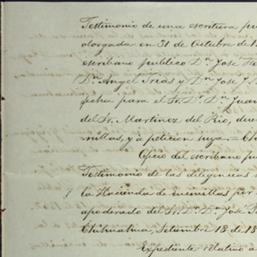 Testimonio de una escritura
otorgada en 31 de Octubre de 1
escribano publico Dn. José
Dn. Angel Frias y Dn José
fecha para el Sr. Dn. Dn Juan
del Sr. Martinez del Rio, due
nillas, y á peticion suya
Oficio del escribano
Testimonio de las diligencias
la Hacienda de encinillas por
apoderado del Sr. Dn. Dn José
Chihuahua, Setiembre 18 de 18
Expediente relativo á